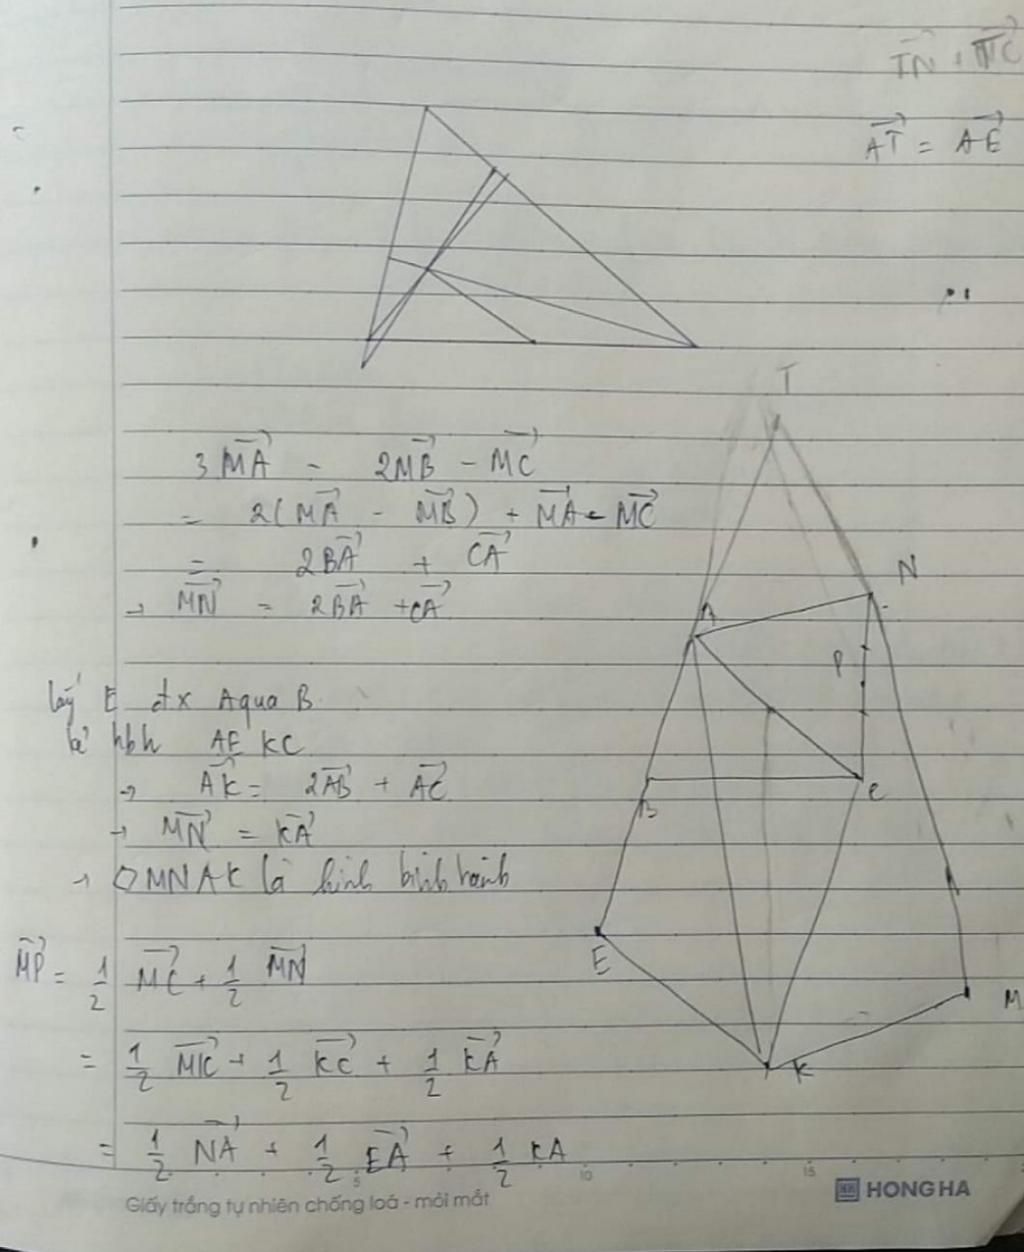 TN + NC
AT = AE
T
3MA - 2MB - MC
= 2(MA - MB) + MA - MC
= 2BA + CA
→ MN = 2BA + CA
N
A
P
lấy E đx A qua B
kẻ hbh AEKC
→ AK = 2AB + AC
B
C
→ MN = KA
→ MNAK là hình bình hành
E
MP = 1/2 MC + 1/2 MN
M
= 1/2 MK + 1/2 KC + 1/2 KA
K
= 1/2 NA + 1/2 EA + 1/2 KA
5 10 15
Giấy trắng tự nhiên chống loá - mỏi mắt
HONG HA